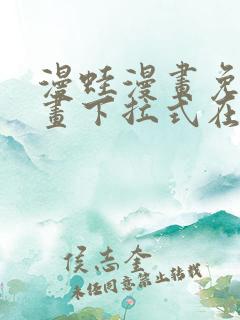 漫蛙漫畫免
畫下拉式在
侯志奎
未经同意禁止转载